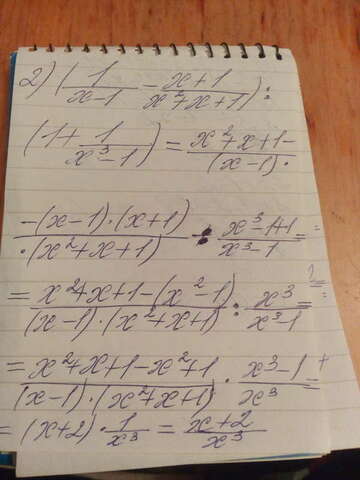 2) (1/(x-1) - (x+1)/(x²+x+1)) :
(1 + 1/(x³-1)) = (x²+x+1-)/((x-1)·
(-(x-1)·(x+1))/(·(x²+x+1)) : (x³-1+1)/(x³-1) =
= (x²+x+1-(x²-1))/((x-1)·(x²+x+1)) : x³/(x³-1) =
= (x²+x+1-x²+1)/((x-1)·(x²+x+1)) · (x³-1)/x³ =
= (x+2)·1/x³ = (x+2)/x³